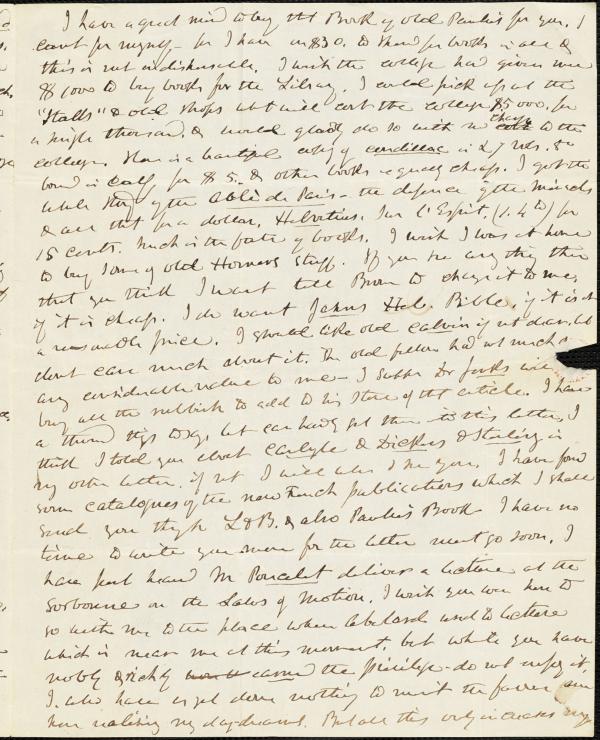 I have a great mind to buy that Book of old Paulus for you. I
cant for myself — for I have only $30. to spend for books in all &
this is not indispensable. I wish the college had given me
$1000 to buy books for the Library. I could pick up at the
"Stalls" & old shops what will cost the college $5000, for
a single thousand, & would gladly do so with no charge to the
college. Here is a beautiful copy of Condillac in 27 vols. 8vo
bound in calf for $5. & other books equally cheap. I got the
whole story of the Abbé de Paris — the defence of the miracles
& all that for a dollar, Helvetius. Sur l'Esprit, (1. 4to) for
15 cents. Such is the fate of books. I wish I was at home
to buy some of old Homers stuff. If you see any thing there
that you think I want tell Brown to charge it to me,
if it is cheap. I do want Jahns Heb. Bible, if it is at
a reasonable price. I should like old Calvin if not dear, but
dont care much about it. The old fellow had not much of
any considerable value to me — I suppose Dr Jenks will
buy all the rubbish to add to his store of that article. I have
a thousand things to say, but can hardly get them into this letter, I
think I told you about Carlyle & Dickens & Sterling in
my other letter, if not I will when I see you. I have found
some catalogues of the new French publications which I shall
send you thro' L&B. & also Paulus's Book I have no
time to write you more for the letter must go soon. I
have just heard M Poncelet deliver a lecture at the
Sorbonne on the Laws of Motion. I wish you were here to
go with me to the place where Abelard used to lecture
which is near me at this moment, but while you have
nobly & richly earned the privilege — do not enjoy it,
I. also have as yet done nothing to merit the favor am
here realising my daydreams. But all this only increases my